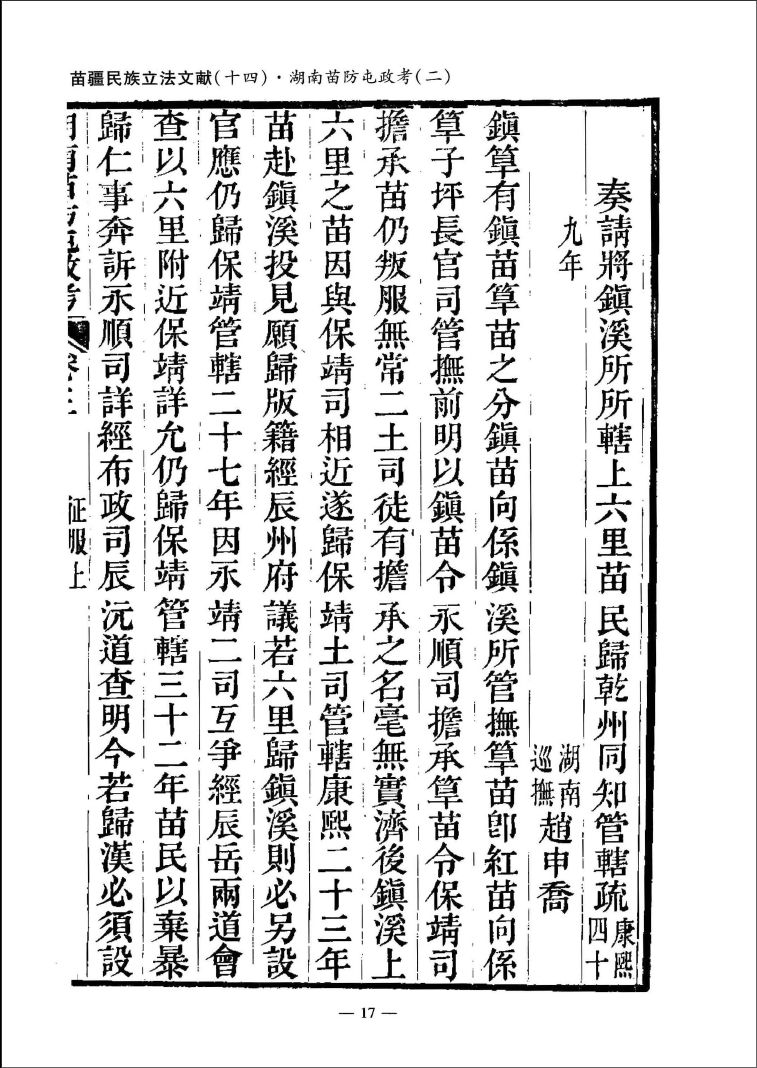 苗疆民族立法文献(十四)·湖南苗防屯政考(二)
奏請將鎭溪所所轄上六里苗民歸乾州同知管轄疏康熙四十
九年
湖南巡撫趙申喬
鎭筸有鎭苗筸苗之分鎭苗向係鎭溪所管撫筸苗卽紅苗向係
筸子坪長官司管撫前明以鎭苗令永順司擔承筸苗令保靖司
擔承苗仍叛服無常二土司徒有擔承之名毫無實濟後鎭溪上
六里之苗因與保靖司相近遂歸保靖土司管轄康熙二十三年
苗赴鎭溪投見願歸版籍經辰州府議若六里歸鎭溪則必另設
官應仍歸保靖管轄二十七年因永靖二司互爭經辰岳兩道會
查以六里附近保靖詳允仍歸保靖管轄三十二年苗民以棄暴
歸仁事奔訴永順司詳經布政司辰沅道查明今若歸漢必須設
征服上
— 17 —